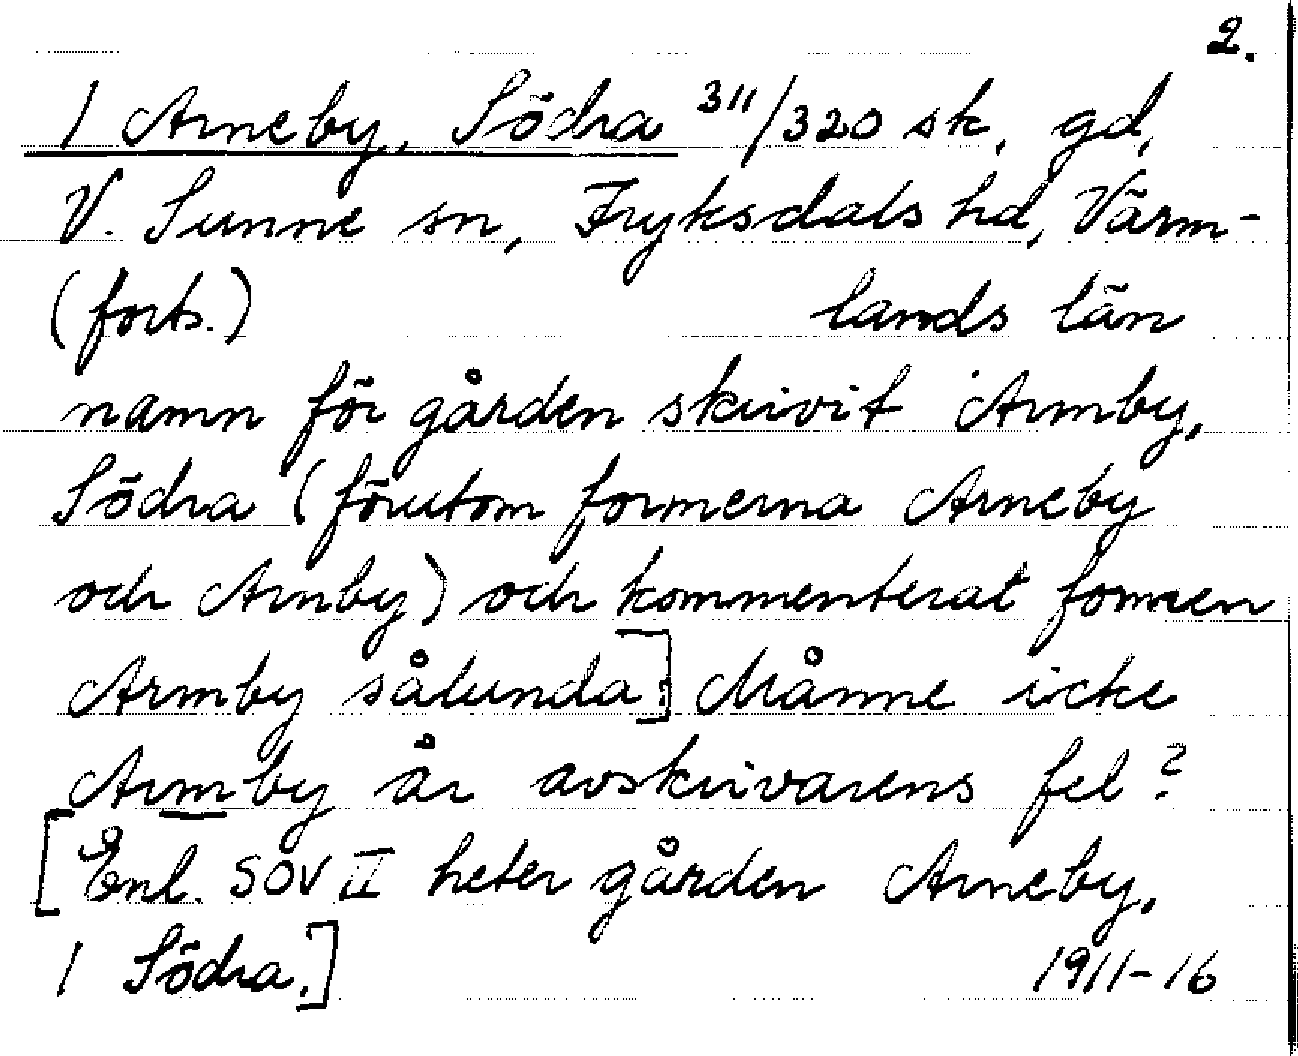 2.
1 Arneby, Södra 311/320 sk, gd,
V. Sunne sn, Fryksdals hd, Värm-
(forts.) lands län
namn för gården skrivit Armby,
Södra (förutom formerna Arneby
och Arnby) och kommenterat formen
Armby sålunda:] Månne icke
Armby är avskrivarens fel?
[Enl. SOV II heter gården Arneby,
1 Södra.] 1911-16